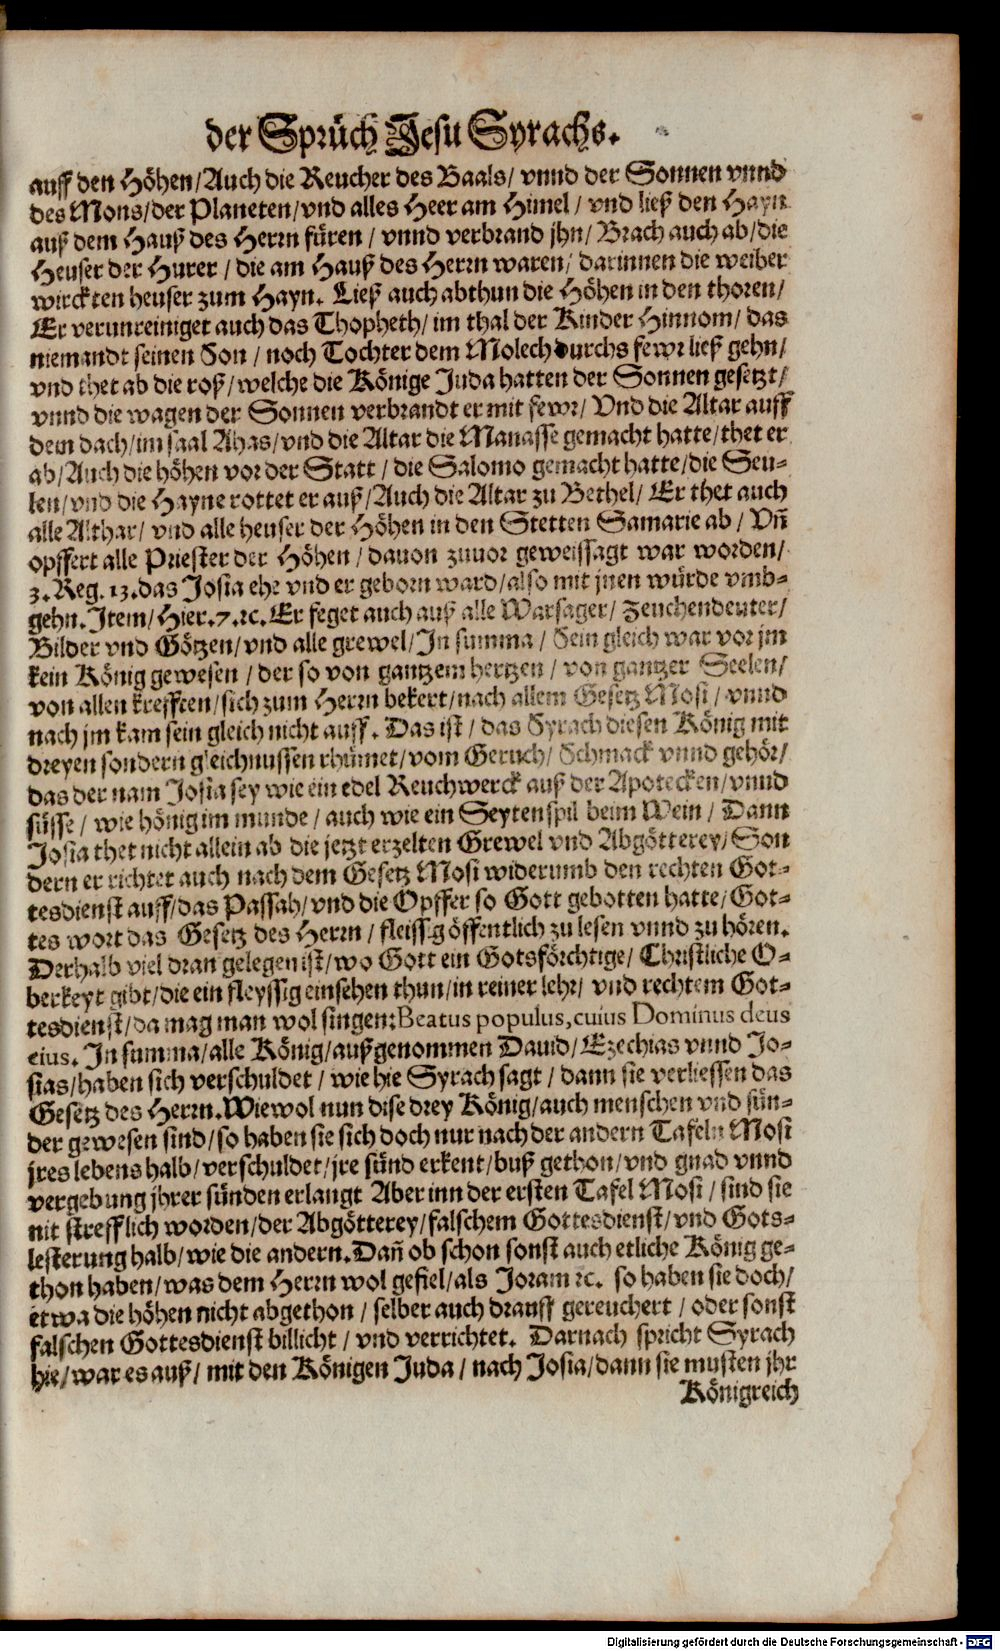 der Sprüch Jesu Syrachs.
auff den Höhen/Auch die Reucher des Baals/ vnnd der Sonnen vnnd
des Mons/der Planeten/vnd alles Heer am Himel / vnd ließ den Hayn
auß dem Hauß des Herrn füren / vnnd verbrand jhn/ Brach auch ab/die
Heuser der Hurer / die am Hauß des Herrn waren/ darinnen die weiber
wirckten heuser zum Hayn. Ließ auch abthun die Höhen in den thoren/
Er verunreiniget auch das Thopheth/ im thal der Kinder Hinnom/ das
niemandt seinen Son / noch Tochter dem Molech durchs fewr ließ gehn/
vnd thet ab die roß/welche die Könige Juda hatten der Sonnen gesetzt/
vnnd die wagen der Sonnen verbrandt er mit fewr/ Vnd die Altar auff
dem dach/im saal Ahas/vnd die Altar die Manasse gemacht hatte/thet er
ab/Auch die höhen vor der Statt / die Salomo gemacht hatte/die Seu-
len/vnd die Hayne rottet er auß/Auch die Altar zu Bethel/ Er thet auch
alle Althar/ vnd alle heuser der Höhen in den Stetten Samarie ab / Vñ
opffert alle Priester der Höhen / dauon zuuor geweissagt war worden/
3. Reg. 13. das Josia ehe vnd er geborn ward/also mit jnen würde vmb-
gehn. Item/Hier. 7. ꝛc. Er feget auch auß alle Warsager/ Zeuchendeuter/
Bilder vnd Götzen/vnd alle grewel/In summa / Sein gleich war vor jm
kein König gewesen / der so von gantzem hertzen / von gantzer Seelen/
von allen krefften/sich zum Herrn bekert/nach allem Gesetz Mosi / vnnd
nach jm kam sein gleich nicht auff. Das ist / das Syrach diesen König mit
dreyen sondern gleichnussen rhümet/vom Geruch/ Schmack vnnd gehör/
das der nam Josia sey wie ein edel Reuchwerck auß der Apotecken/vnnd
süsse / wie hönig im munde / auch wie ein Seytenspil beim Wein / Dann
Josia thet nicht allein ab die jetzt erzelten Grewel vnd Abgötterey/ Son
dern er richtet auch nach dem Gesetz Mosi widerumb den rechten Got-
tesdienst auff/das Passah/vnd die Opffer so Gott gebotten hatte/Got-
tes wort das Gesetz des Herrn / fleissig öffentlich zu lesen vnnd zu hören.
Derhalb viel dran gelegen ist/wo Gott ein Gotsförchtige/ Christliche O-
berkeyt gibt/die ein fleyssig einsehen thun/in reiner lehr/ vnd rechtem Got-
tesdienst/da mag man wol singen: Beatus populus, cuius Dominus deus
eius. In summa/alle König/außgenommen Dauid/Ezechias vnnd Jo-
sias/haben sich verschuldet / wie hie Syrach sagt / dann sie verliessen das
Gesetz des Herrn. Wiewol nun dise drey König/auch menschen vnd sün-
der gewesen sind/so haben sie sich doch nur nach der andern Tafeln Mosi
jres lebens halb/verschuldet/jre sünd erkent/buß gethon/vnd gnad vnnd
vergebung jhrer sünden erlangt Aber inn der ersten Tafel Mosi / sind sie
nit strefflich worden/der Abgötterey/falschem Gottesdienst/vnd Gots-
lesterung halb/wie die andern. Dañ ob schon sonst auch etliche König ge-
thon haben/was dem Herrn wol gefiel/als Joram ꝛc. so haben sie doch/
etwa die höhen nicht abgethon / selber auch drauff gereuchert / oder sonst
falschen Gottesdienst billicht / vnd verrichtet. Darnach spricht Syrach
hie/war es auß/ mit den Königen Juda / nach Josia/dann sie musten jhr
Königreich
Digitalisierung gefördert durch die Deutsche Forschungsgemeinschaft - DFG